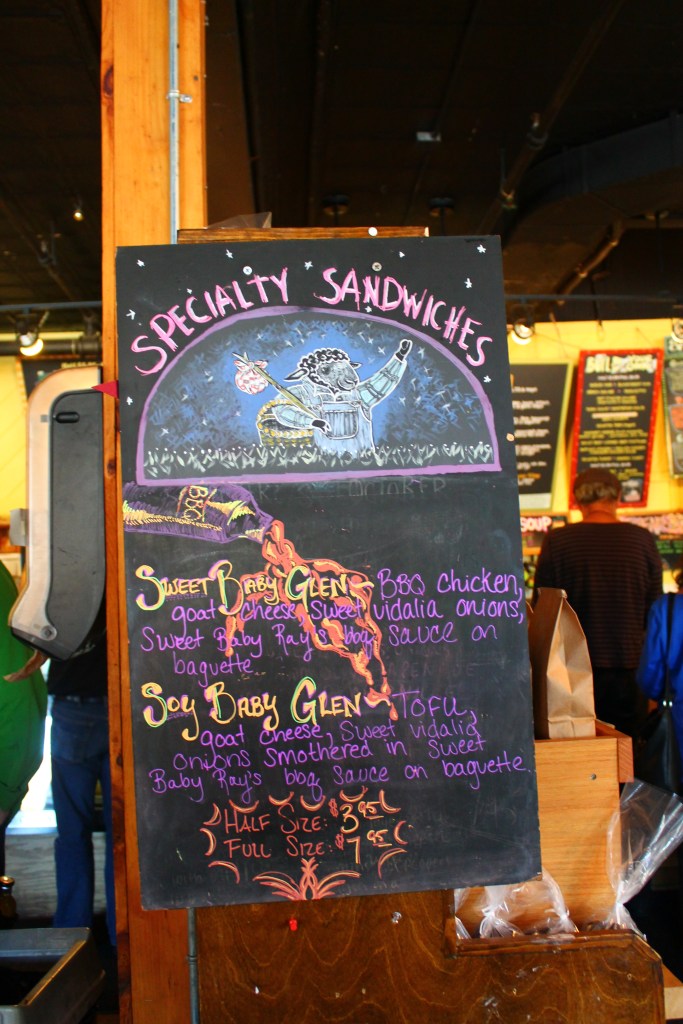 SPECIALTY SANDWICHES
BBQ
SWEET BABY GLEN~ BBQ Chicken,
goat cheese, sweet vidalia onions,
Sweet Baby Ray's bbq sauce on
baguette
SOY BABY GLEN~ TOFU,
goat cheese, sweet vidalia
onions smothered in sweet
Baby Ray's bbq sauce on baguette
HALF SIZE: $3.95
FULL SIZE: $7.95
SOUP